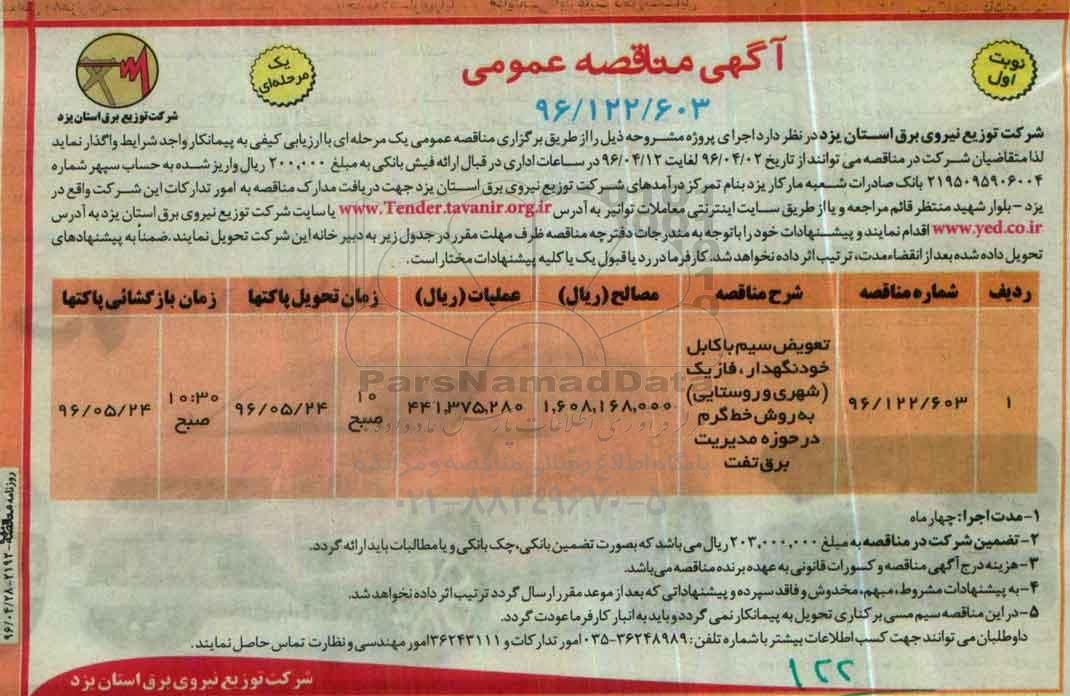 آگهی مناقصه عمومی
۹۶/۱۲۲/۶۰۳
نوبت اول
یک مرحله‌ای
شرکت توزیع برق استان یزد
شرکت توزیع نیروی برق استان یزد در نظر دارد اجرای پروژه مشروحه ذیل را از طریق برگزاری مناقصه عمومی یک مرحله ای با ارزیابی کیفی به پیمانکار واجد شرایط واگذار نماید
لذا متقاضیان شرکت در مناقصه می توانند از تاریخ ۹۶/۰۴/۰۲ لغایت ۹۶/۰۴/۱۲ در ساعات اداری در قبال ارائه فیش بانکی به مبلغ ۲۰۰,۰۰۰ ریال واریز شده به حساب سپهر شماره
۲۱۹۵۰۹۵۹۰۶۰۰۴ بانک صادرات شعبه مارکار یزد بنام تمرکز درآمدهای شرکت توزیع نیروی برق استان یزد جهت دریافت مدارک مناقصه به امور تدارکات این شرکت واقع در
یزد - بلوار شهید منتظر قائم مراجعه و یا از طریق سایت اینترنتی معاملات توانیر به آدرس www.Tender.tavanir.org.ir یا سایت شرکت توزیع نیروی برق استان یزد به آدرس
www.yed.co.ir اقدام نمایند و پیشنهادات خود را باتوجه به مندرجات دفترچه مناقصه ظرف مهلت مقرر در جدول زیر به دبیر خانه این شرکت تحویل نمایند. ضمناً به پیشنهادهای
تحویل داده شده بعد از انقضاء مدت، ترتیب اثر داده نخواهد شد. کارفرما در رد یا قبول یک یا کلیه پیشنهادات مختار است.
ردیف شماره مناقصه شرح مناقصه مصالح (ریال) عملیات (ریال) زمان تحویل پاکتها زمان بازگشائی پاکتها
۱ ۹۶/۱۲۲/۶۰۳ تعویض سیم با کابل
خودنگهدار ، فاز یک
(شهری و روستایی)
به روش خط گرم
در حوزه مدیریت
برق تفت
۱,۶۰۸,۱۶۸,۰۰۰ ۴۴۱,۳۷۵,۲۸۰ ۱۰ صبح ۹۶/۰۵/۲۴ ۱۰:۳۰ صبح ۹۶/۰۵/۲۴
ParsNamadData
پایگاه اطلاع رسانی مناقصه و مزایده
۰۲۱-۸۸۳۴۹۶۷۰-۵
۱- مدت اجرا: چهار ماه
۲- تضمین شرکت در مناقصه به مبلغ ۲۰۳,۰۰۰,۰۰۰ ریال می باشد که بصورت تضمین بانکی، چک بانکی و یا مطالبات باید ارائه گردد.
۳- هزینه درج آگهی مناقصه و کسورات قانونی به عهده برنده مناقصه می باشد.
۴- به پیشنهادات مشروط، مبهم، مخدوش و فاقد سپرده و پیشنهاداتی که بعد از موعد مقرر ارسال گردد ترتیب اثر داده نخواهد شد.
۵- در این مناقصه سیم مسی برکناری تحویل به پیمانکار نمی گردد و باید به انبار کارفرما عودت گردد.
داوطلبان می توانند جهت کسب اطلاعات بیشتر با شماره تلفن: ۳۶۲۴۸۹۸۹-۰۳۵ امور تدارکات و ۳۶۲۴۳۱۱۱ امور مهندسی و نظارت تماس حاصل نمایند.
۱۲۲
شرکت توزیع نیروی برق استان یزد